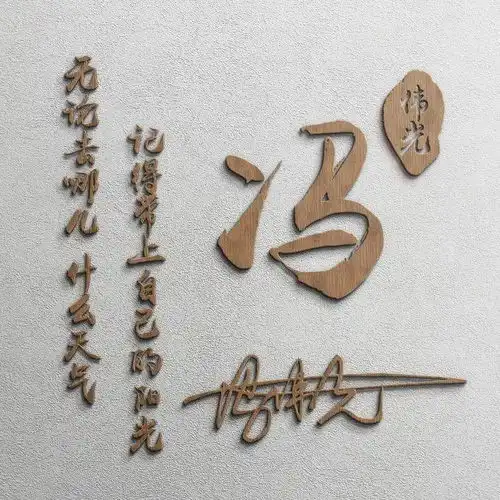 无论去哪儿 什么天气
记得带上自己的阳光
冯
伟光
冯伟光